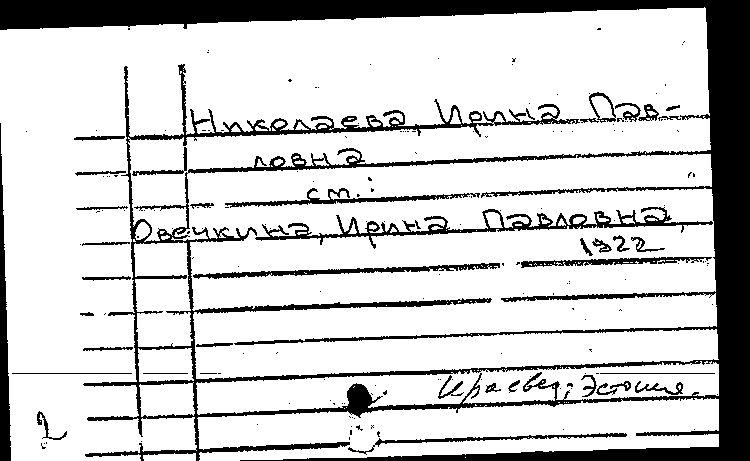 Николаева, Ирина Пав-
ловна
см.:
Овечкина, Ирина Павловна,
1922
Краевед; Эстония.
2